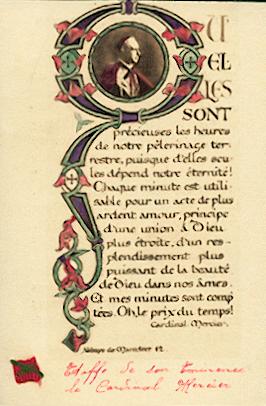 QUEL
LES
SONT
précieuses les heures
de notre pèlerinage ter-
restre, puisque d'elles seu-
les dépend notre éternité!
Chaque minute est utili-
sable pour un acte de plus
ardent amour, principe
d'une union à Dieu
plus étroite, d'un res-
plendissement plus
puissant de la beauté
de Dieu dans nos âmes.
Et mes minutes sont comp
tées. Oh! le prix du temps!
Cardinal Mercier.
Abbaye de Maredret 12.
Etoffe de son Eminence
le Cardinal Mercier